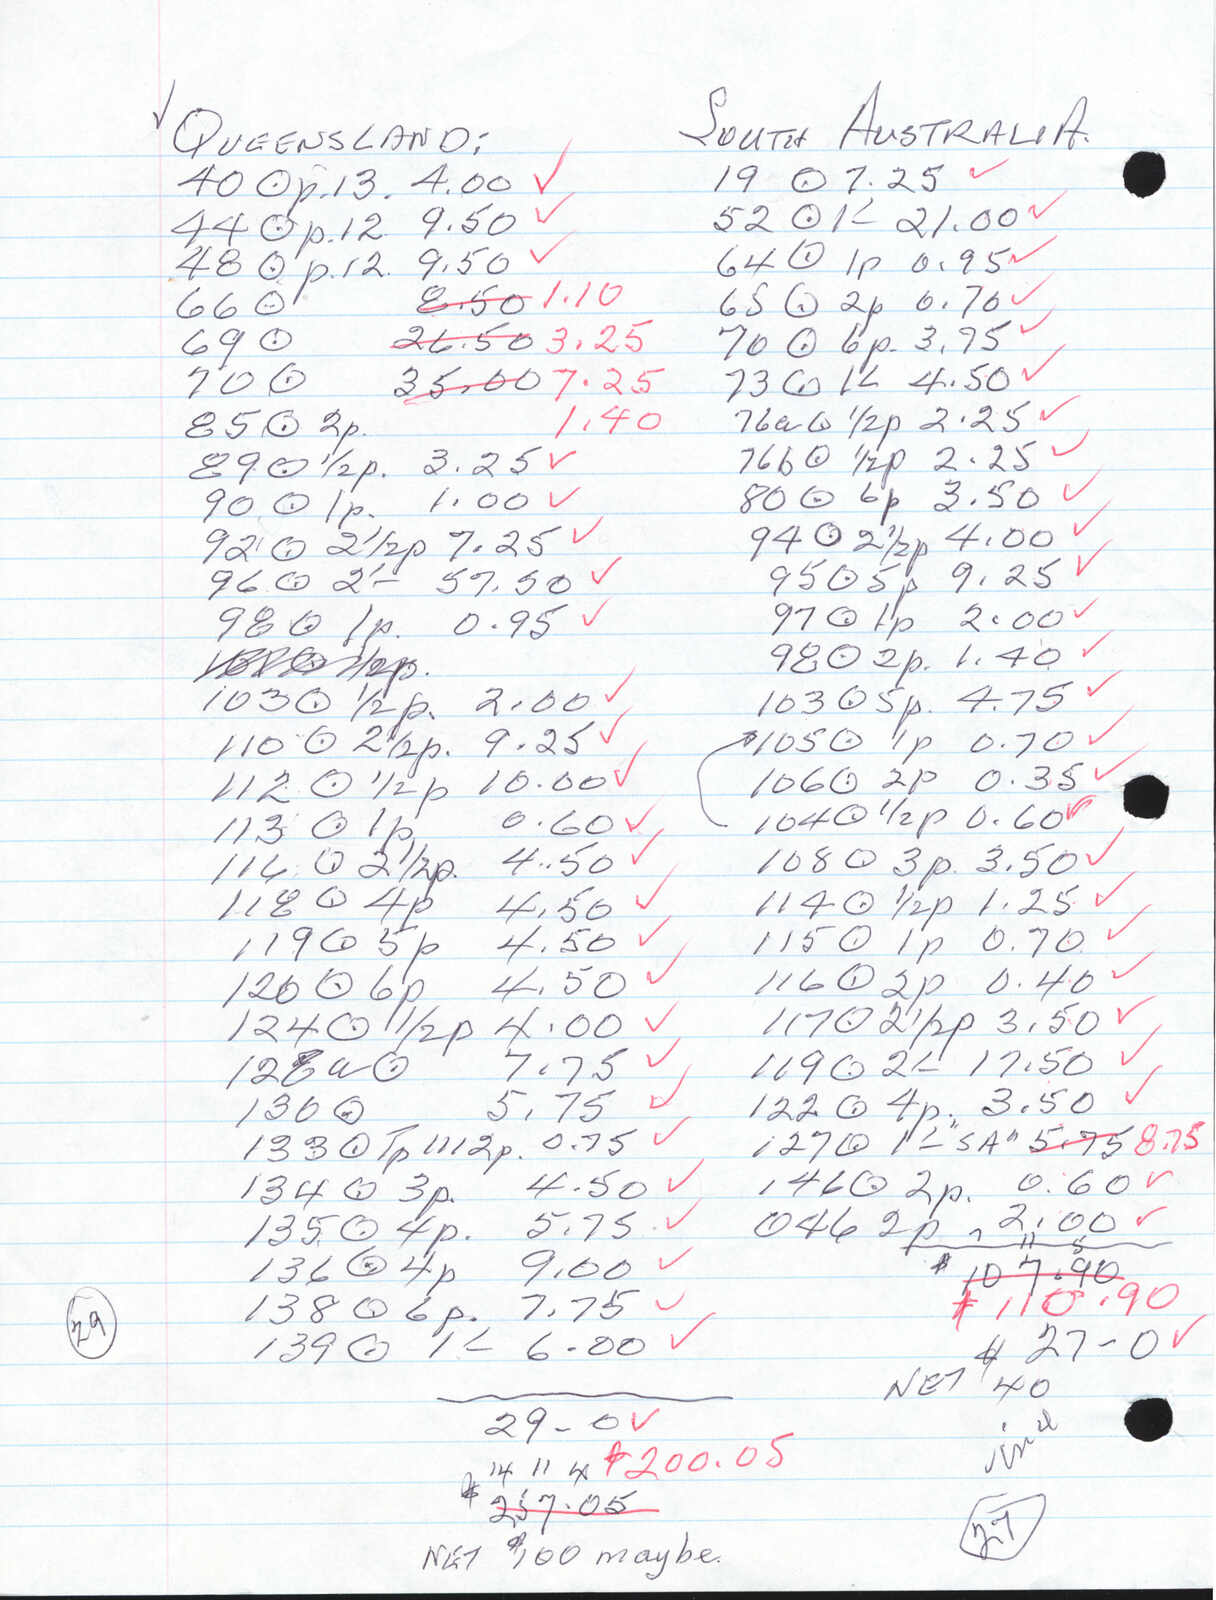 ✓ QUEENSLAND:
40 ⊙ p.13. 4.00 ✓
44 ⊙ p.12 9.50 ✓
48 ⊙ p.12. 9.50 ✓
66 ⊙ 8.50 1.10
69 ⊙ 26.50 3.25
70 ⊙ 35.00 7.25
85 ⊙ 2p. 1.40
89 ⊙ 1/2p. 3.25 ✓
90 ⊙ 1p. 1.00 ✓
92 ⊙ 2 1/2p 7.25 ✓
96 ⊙ 2/- 57.50 ✓
98 ⊙ 1p. 0.95 ✓
103 ⊙ 1/2p. 2.00 ✓
110 ⊙ 2 1/2p. 9.25 ✓
112 ⊙ 1/2p 10.00 ✓
113 ⊙ 1p 0.60 ✓
116 ⊙ 2 1/2p. 4.50 ✓
118 ⊙ 4p 4.50 ✓
119 ⊙ 5p 4.50 ✓
120 ⊙ 6p 4.50 ✓
124 ⊙ 1/2p 4.00 ✓
128a ⊙ 7.75 ✓
130 ⊙ 5.75 ✓
133 ⊙ Tp III 2p. 0.75 ✓
134 ⊙ 3p. 4.50 ✓
135 ⊙ 4p. 5.75 ✓
136 ⊙ 4p 9.00 ✓
138 ⊙ 6p. 7.75 ✓
139 ⊙ 1/- 6.00 ✓
29-0 ✓
14 11 4 $200.05
$ 257.05
NET $100 maybe.
29
SOUTH AUSTRALIA.
19 ⊙ 7.25 ✓
52 ⊙ 1/- 21.00 ✓
64 ⊙ 1p 0.95 ✓
65 ⊙ 2p 0.70 ✓
70 ⊙ 6p. 3.75 ✓
73 ⊙ 1/- 4.50 ✓
76a ⊙ 1/2p 2.25 ✓
76b ⊙ 1/2p 2.25 ✓
80 ⊙ 6p 3.50 ✓
94 ⊙ 2 1/2p 4.00 ✓
95 ⊙ 5p 9.25 ✓
97 ⊙ 1p 2.00 ✓
98 ⊙ 2p. 1.40 ✓
103 ⊙ 5p. 4.75 ✓
105 ⊙ 1p 0.70 ✓
106 ⊙ 2p 0.35 ✓
104 ⊙ 1/2p 0.60 ✓
108 ⊙ 3p. 3.50 ✓
114 ⊙ 1/2p 1.25 ✓
115 ⊙ 1p 0.70 ✓
116 ⊙ 2p 0.40 ✓
117 ⊙ 2 1/2p 3.50 ✓
119 ⊙ 2/- 17.50 ✓
122 ⊙ 4p. 3.50 ✓
127 ⊙ 1/- "SA" 5.75 8.75
146 ⊙ 2p. 0.60 ✓
046 2p 2.00 ✓
$ 107.90
$ 110.90
$ 27-0 ✓
NET $40
27